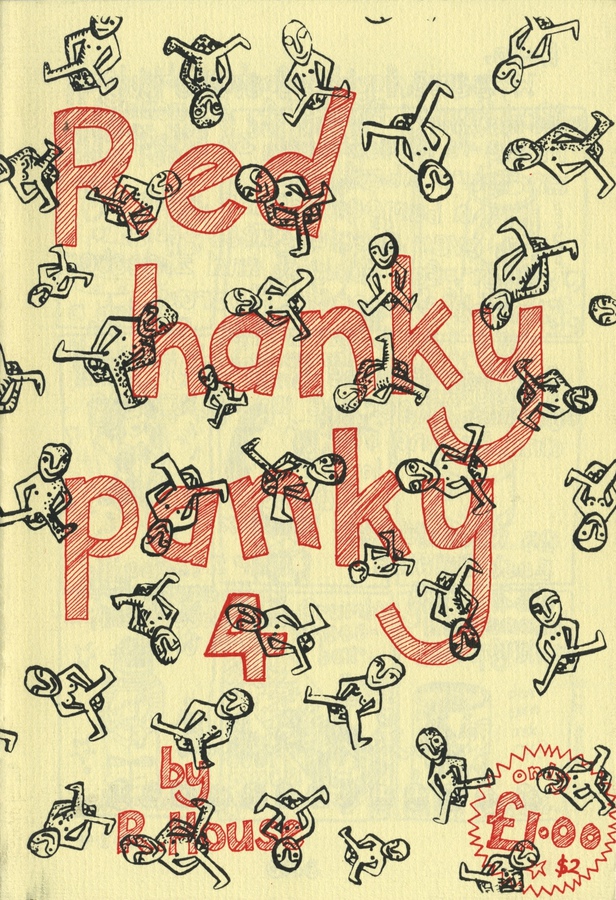 Red
hanky
panky
4
by
R. House
only
£1.00
$2